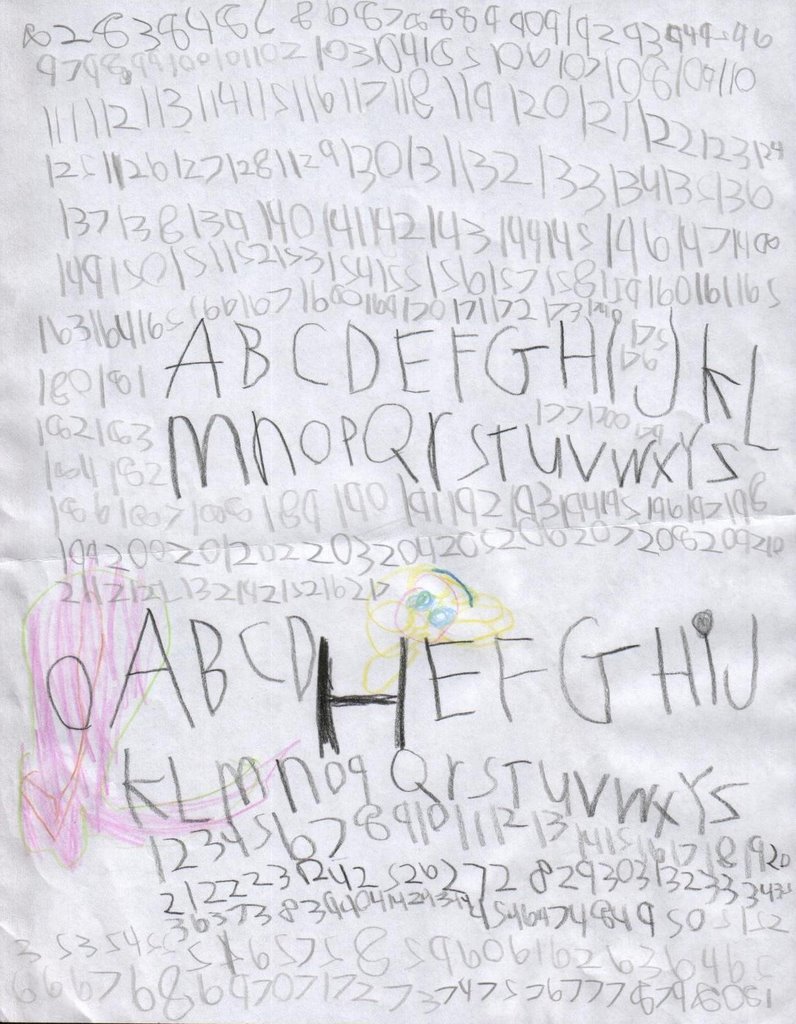 8283848586878889909192939495 96
979899100101102 103104105106107108109110
111112113114115116117118119120121122123124
125126127128129130131132133134135136
137138139140141142143144145146147148
149150151152153154155156157158159160161162
163164165166167168169170171172173174
ABCDEFGHIJKL
175
176
180181
177178
179
182183
MNOPQrSTUVWXYS
186187188189190191192193194195196197198
199200201202203204205206207208209210
211212213214215216217
O ABCD H EFGHiJ
KLMNOqQrSTUVWXYS
1234567891011121314151617181920
21222324252627282930313233343
363738394041424344454647484950 5152
3 5354555657585960616263646
666768697071727374757677787980 81